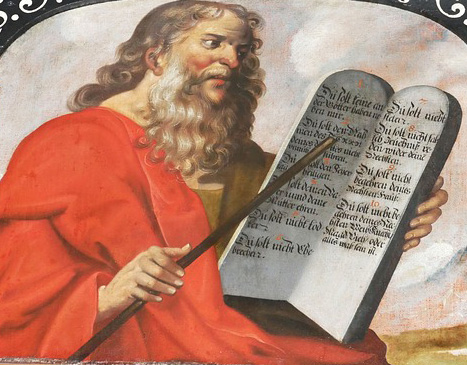 Du solt keine an
der Götter haben ne
ben mir.
Du solt den Nah
men des
nicht
führen.
Du solt den Feyer
Du solt deinen Va
ter und deine
Mutter ehren.
Du solt nicht töd
Du solt nicht Ehe
brechen.
7.
Du solt nicht
8.
Du solt nicht fal
sch Zeichnuß re
den wider deine
Nechsten.
Du solt nicht
begehren deines
Nechsten Hauß.
10.
Du solt nicht be
gehren deines Ne
Magd Vieh oder
alles was sein ist.